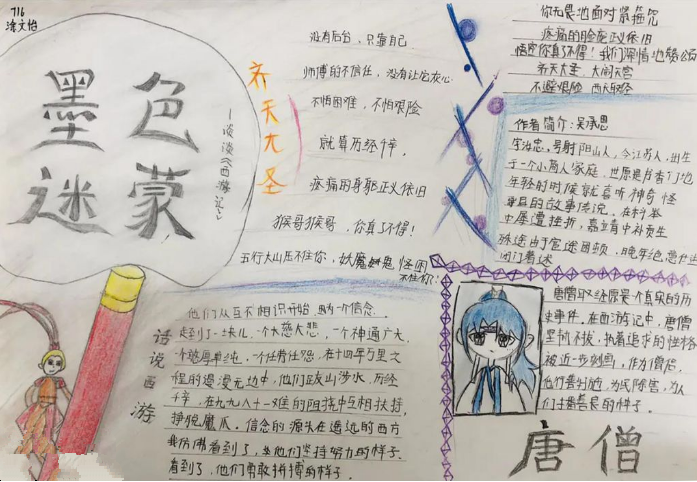 716
涂文怡
墨色
迷蒙
—谈谈《西游记》
齐天大圣
没有后台，只靠自己
师傅的不信任，没有让它灰心
不怕困难，不怕艰险
就算历经千辛，
疼痛的身躯正义依旧
猴哥猴哥，你真了不得！
五行大山压不住你，妖魔 鬼怪 闹
不住你！
你无畏地面对紧箍咒
疼痛的脸庞正义依旧
悟空你真了不得！我们深情地矮颂
齐天大圣 大闹天宫
不避艰险 西天取经
作者简介：吴承恩
字汝忠，号射阳山人，今江苏人，出生
于一个小商人家庭，世原是
年轻的时候就喜听神奇怪
的故事传说。在科举
中屡遭挫折，嘉靖中补贡生
由于官途困顿，晚年绝意
闭门著述
话说西游
他们从互不相识开始，为一个信念
走到了一块儿。一个大慈大悲，一个神通广大，
一个憨厚单纯，一个任劳任怨，在十四年万里文
程的漫漫无边中，他们跋山涉水，历经
千辛，在九九八十一难的阻挠中互相扶持，
挣脱魔爪。信念的源头在遥远的西方
我仿佛看到了，他们坚持努力的样子，
看到了，他们勇敢拼搏的样子。
唐僧取经原是个真实的历
史事件，在西游记中，唐僧
坚韧不拔，执着追求的性格
被近一步刻画，作为僧侣，
他们 为民除害，为人
们 善良的样子。
唐僧